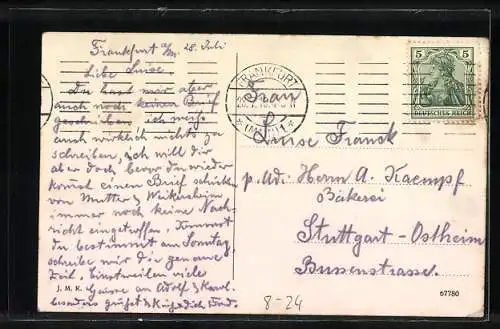 Frankfurt a/M. 28. Juli
Liebe Luise.
Du hast mir aber
auch noch keinen Brief
geschrieben, ich weiß
auch wirklich nichts zu
schreiben, ich will dir
aber doch bevor du wieder
kommst einen Brief schicken
von Mutter & Weikersheim
immer noch keine Nach-
richt eingetroffen. Kommst
du bestimmt am Sonntag,
schreibe mir die genaue
Zeil. Einstweilen viele
Grüsse an Adolf & Karl.
besonders grüßt & küßt dich
FRANKFURT
5 5
DEUTSCHES REICH
Frau
Luise Franck
p. Adr. Herrn A. Kaempf
Bäkerei
Stuttgart-Ostheim
strasse.
J. M. K.
8-24
67780